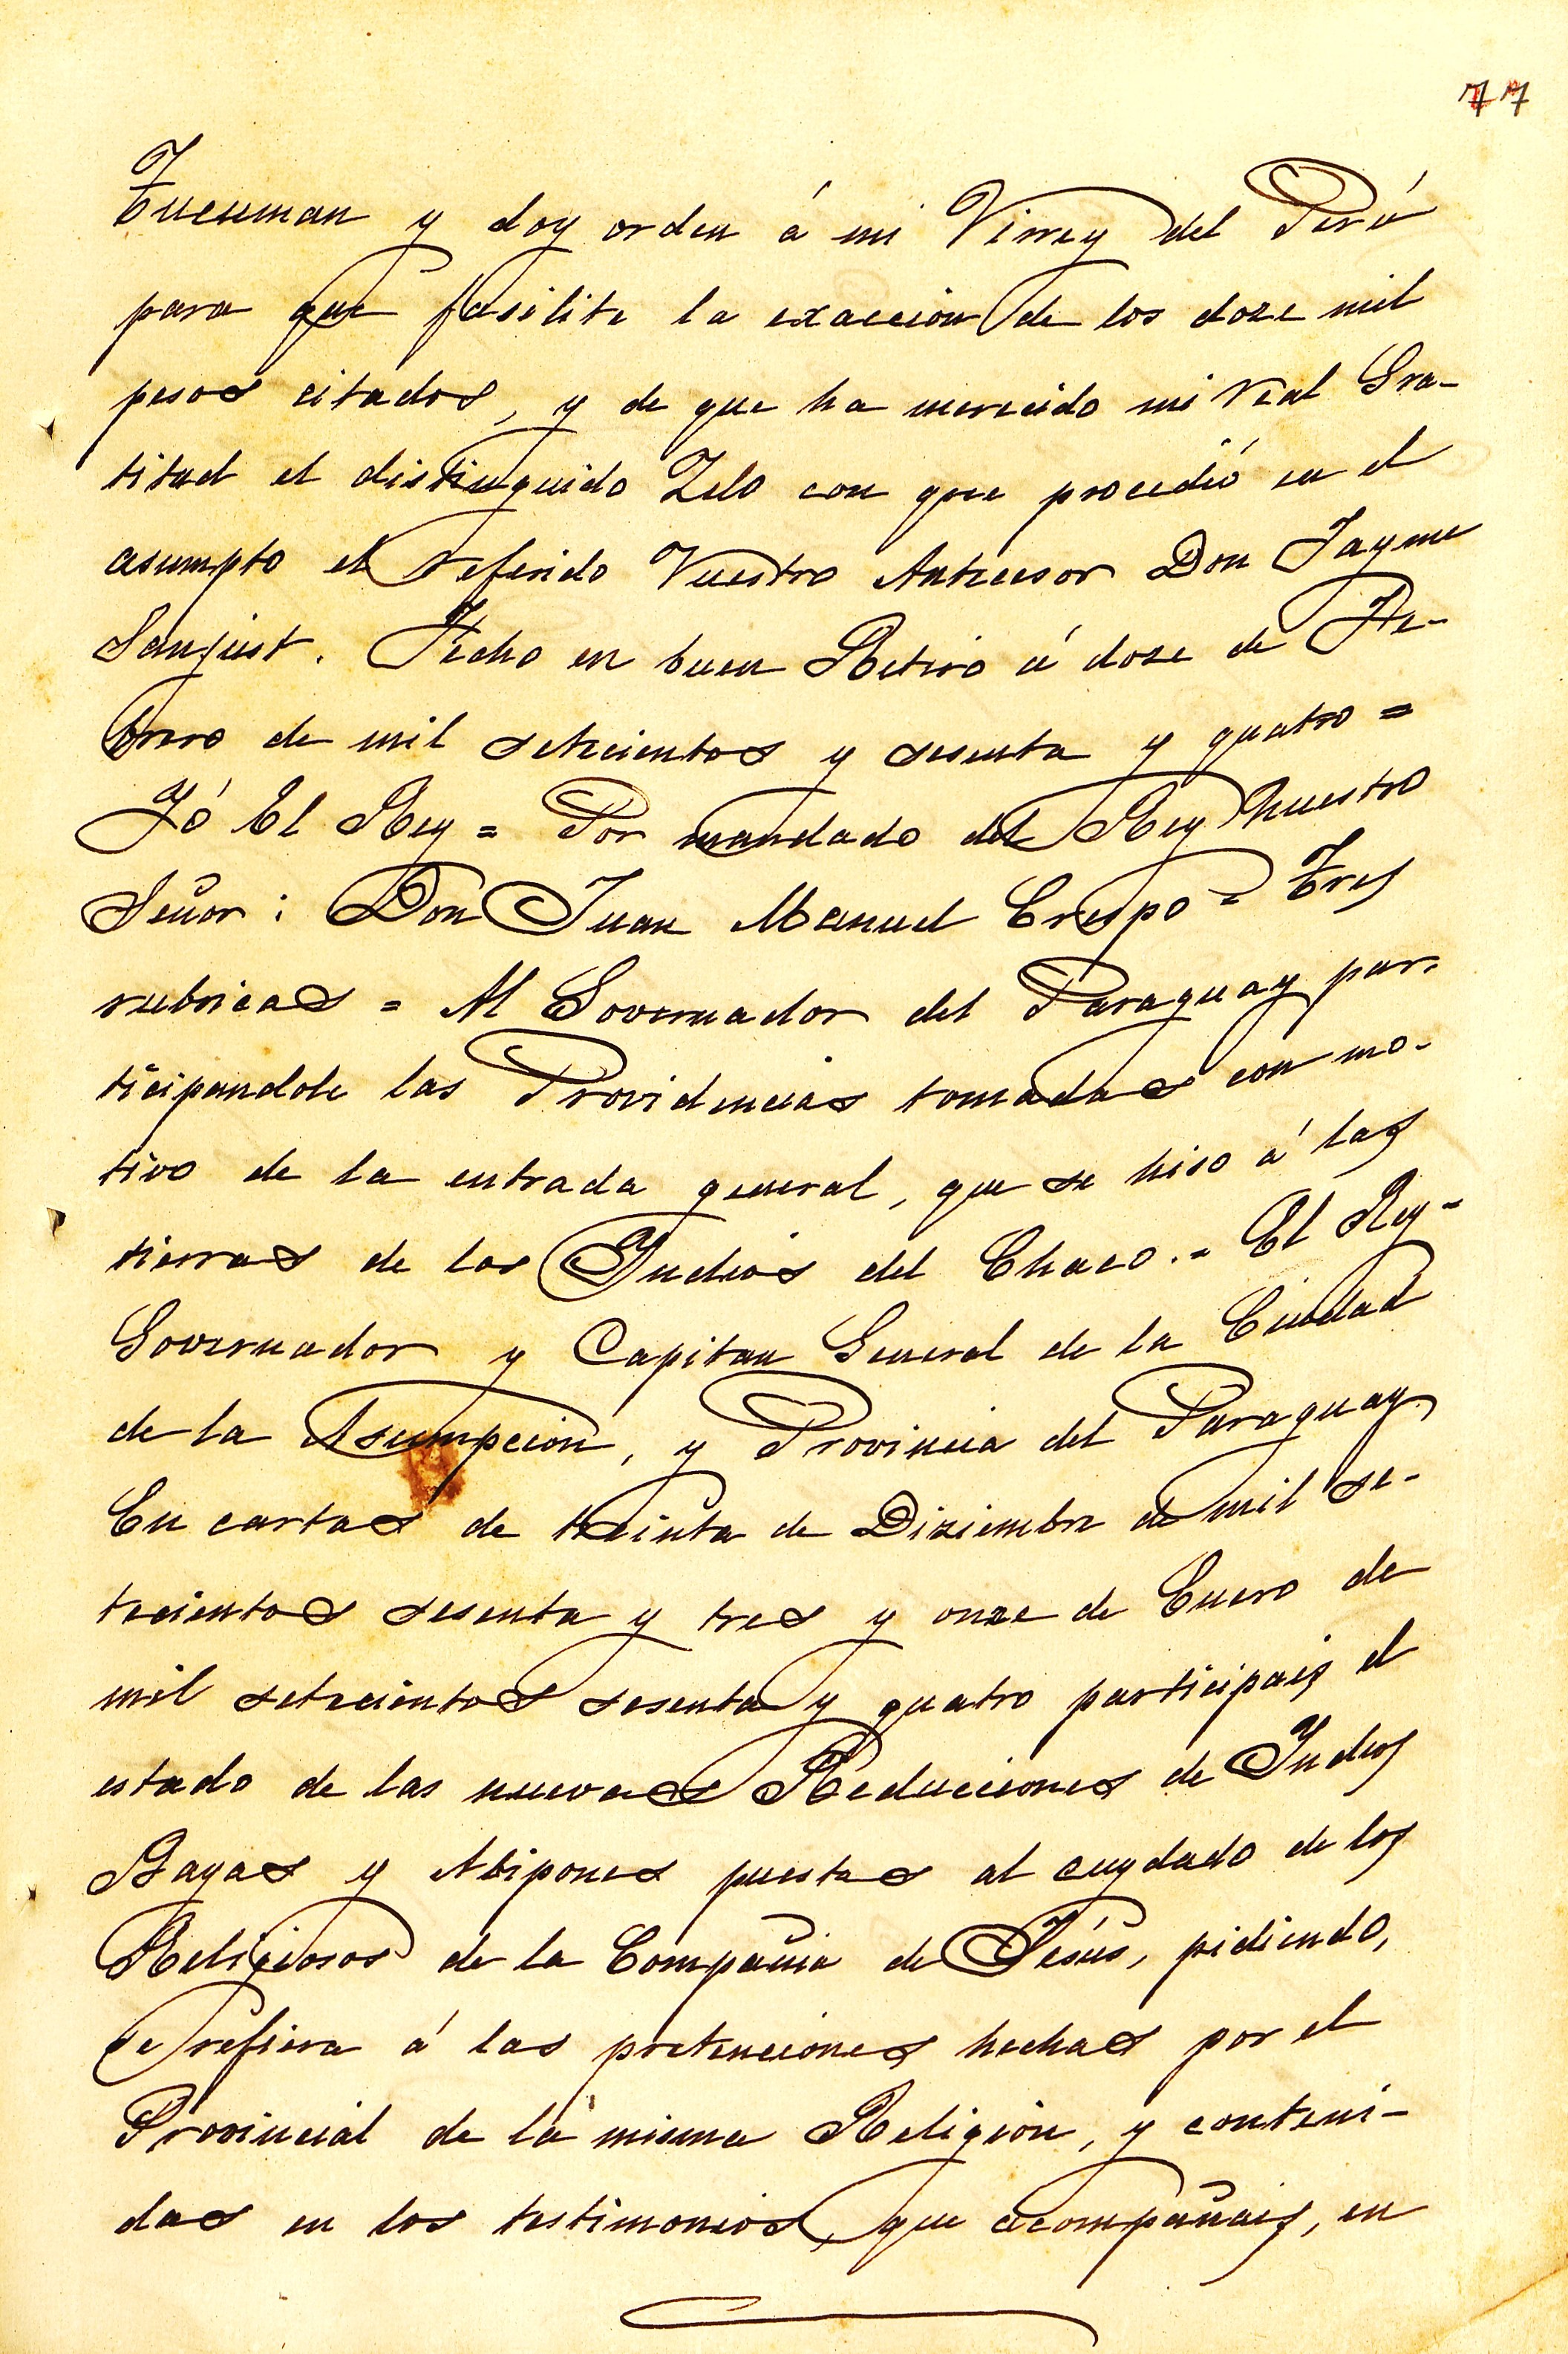 77
Tucuman y doy orden á mi Virrey del Perú
para que fasilite la exaccion de los doze mil
pesos citados, y de que ha merecido mi real Gra-
titud el distinguido Zelo con que procedió en el
asumpto el referido Vuestro Antecesor Don Jayme
Sanjust. Fecho en buen Retiro á dose de Fe-
brero de mil setecientos y sesenta y quatro =
Yó El Rey = Por mandado del Rey nuestro
Señor: Don Juan Manuel Crespo = Tres
rubricas = Al Governador del Paraguay par-
ticipandole las Providencias tomadas con mo-
tivo de la entrada general, que se hiso á las
tierras de los Indios del Chaco. = El Rey -
Governador y Capitan General de la Ciudad
de la Asumpcion, y Provincia del Paraguay
En cartas de treinta de Diziembre de mil se-
tecientos sesenta y tres y onze de Enero de
mil setecientos sesenta y quatro participais el
estado de las nuevas Reducciones de Indios
Bayas y Abipones puestas al cuydado de los
Religiosos de la Compañia de Jesús, pidiendo,
se refiera á las pretenciones hechas por el
Provincial de la misma Religion, y conteni-
das en los testimonios, que acompañais, en